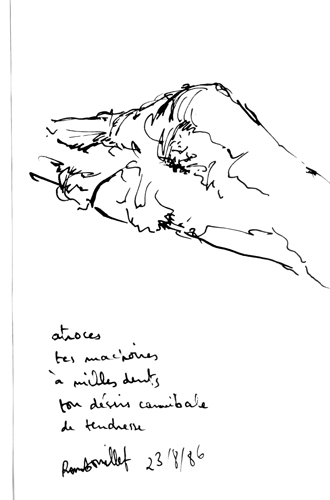 atroces
tes machoires
à milles dents
ton désirs cannibale
de tendresse
Rambouillet 23/8/86